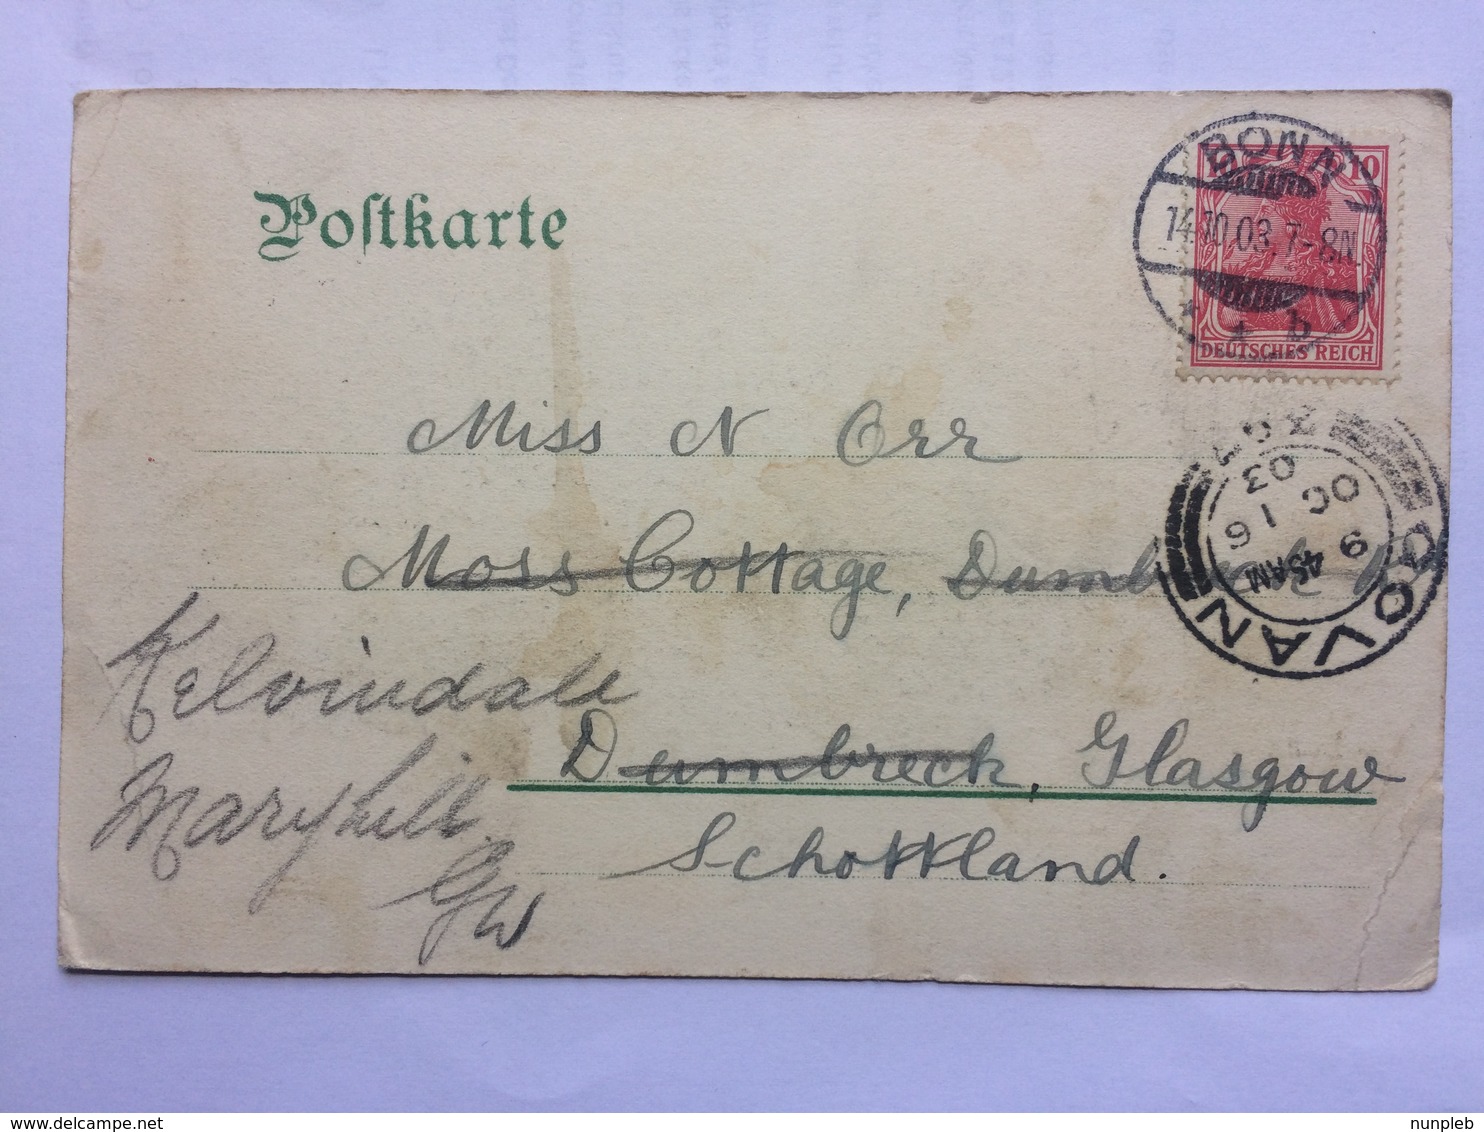 Postkarte
10 10
BONN
14.10.03. 7-8N.
* * b
DEUTSCHES REICH
Miss N Orr
Moss Cottage,
Dumbreck, Glasgow
Schottland.
Kelvindale
Maryhill
Gw
GOVAN
9 45AM
OC 16
03
nunpleb
delcampe.net